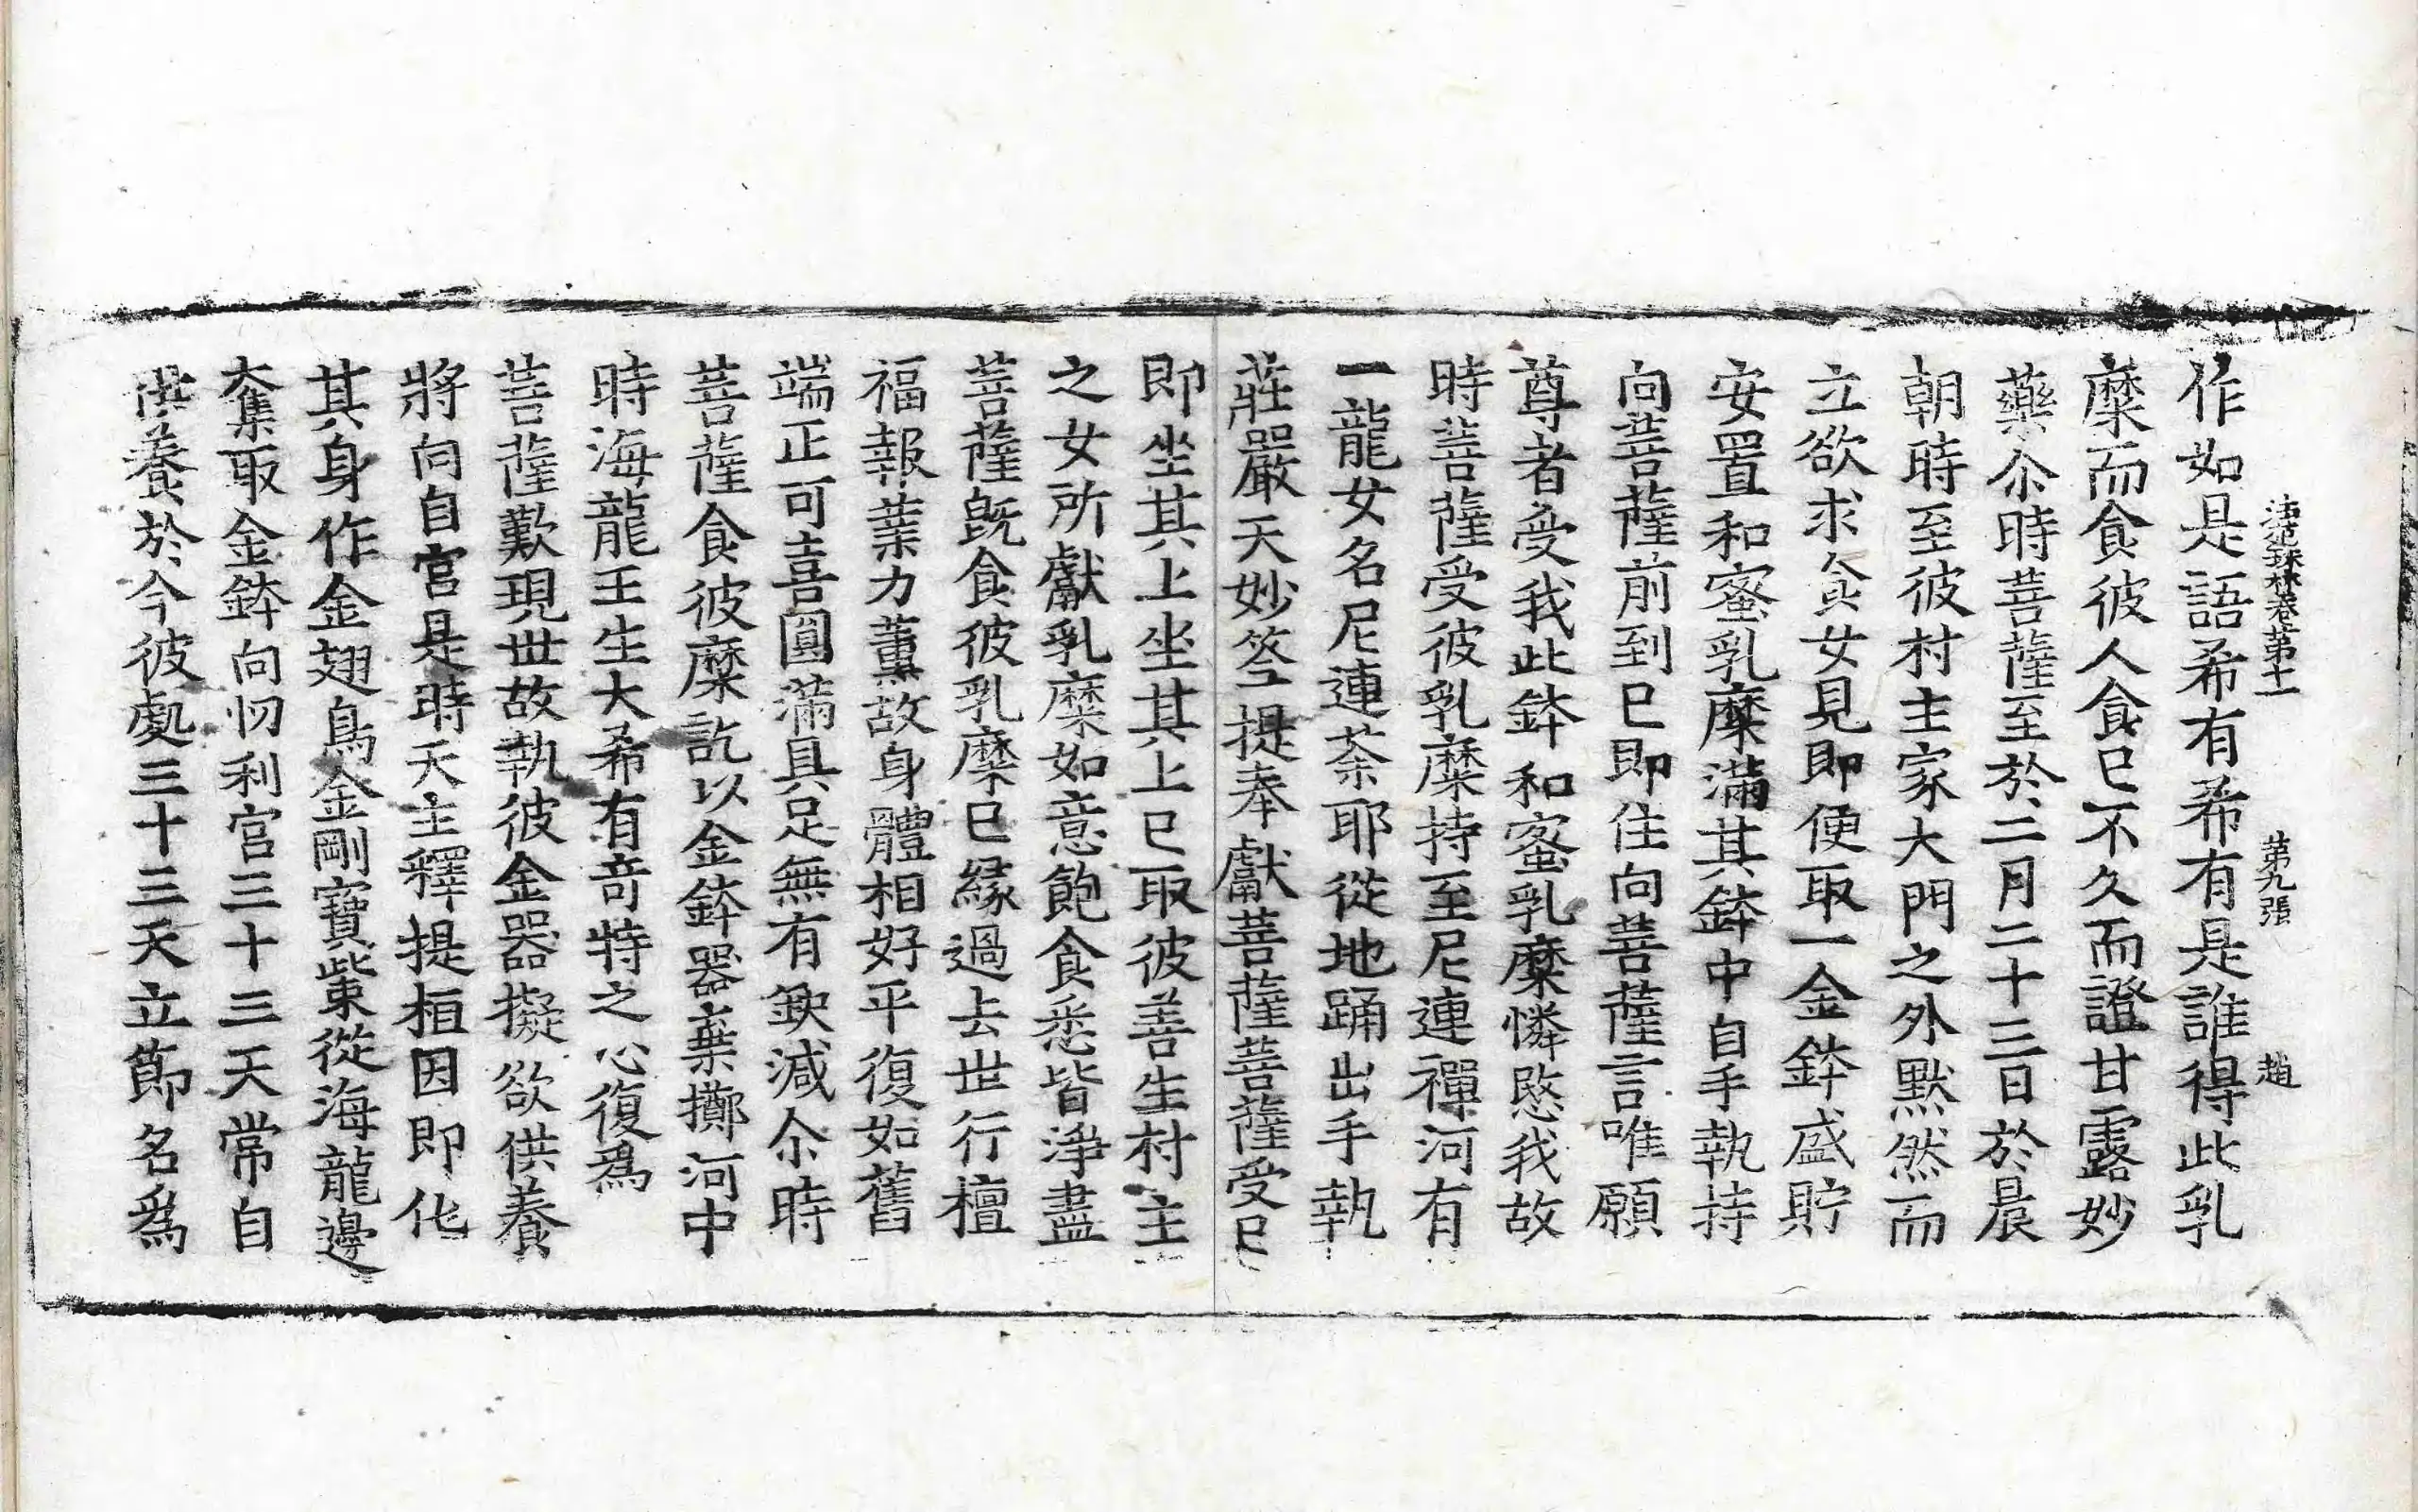 法苑珠林卷第十一 第九張 趙
作如是語希有希有是誰得此乳
糜而食彼人食已不久而證甘露妙
藥尒時菩薩至於二月二十三日於晨
朝時至彼村主家大門之外默然而
立欲求食女見即便取一金鉢盛貯
安置和蜜乳糜滿其鉢中自手執持
向菩薩前到已即住向菩薩言唯願
尊者受我此鉢和蜜乳糜憐愍我故
時菩薩受彼乳糜持至尼連禪河有
一龍女名尼連荼耶從地踊出手執
莊嚴天妙筌提奉獻菩薩菩薩受已
即坐其上坐其上已取彼善生村主
之女所獻乳糜如意飽食悉皆淨盡
菩薩旣食彼乳糜已緣過去世行檀
福報業力薰故身體相好平復如舊
端正可喜圓滿具足無有缺減尒時
菩薩食彼糜訖以金鉢器棄擲河中
時海龍王生大希有竒特之心復爲
菩薩歎現世故執彼金器擬欲供養
將向自宮是時天主釋提桓因即化
其身作金翅鳥金剛寶㭰從海龍邊
奪取金鉢向忉利宮三十三天常自
供養於今彼處三十三天立節名爲